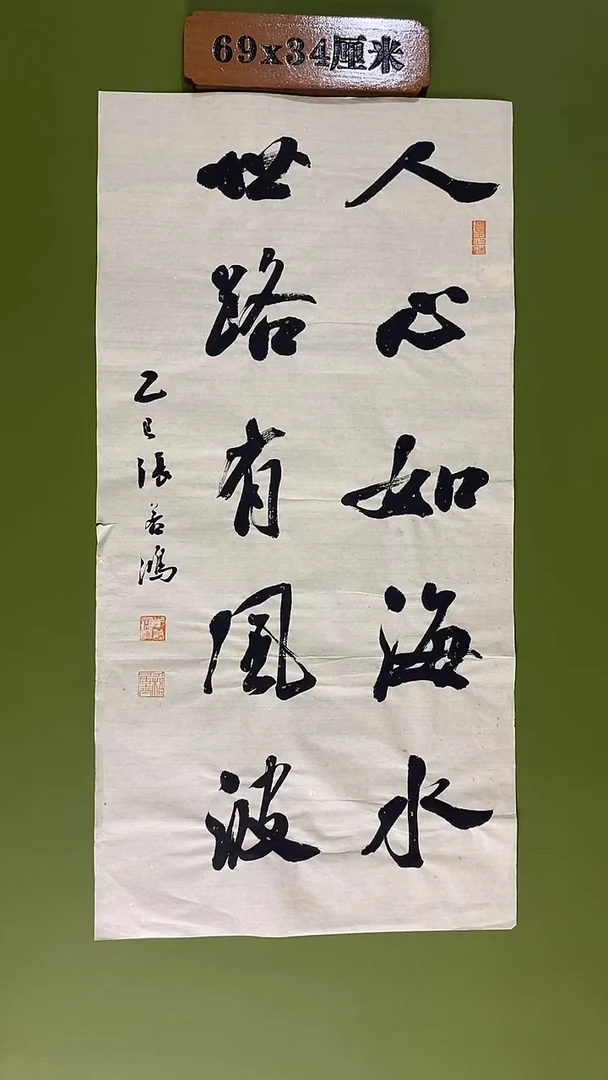 69x34厘米
人心如海水
世路有风波
乙巳張若鴻